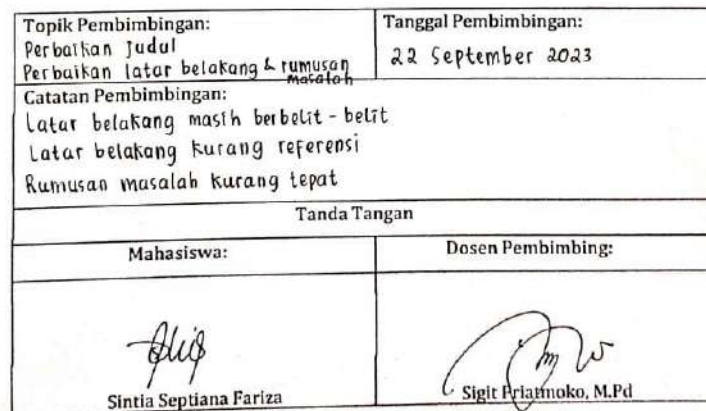 Topik Pembimbingan:
Perbaikan Judul
Perbaikan latar belakang & rumusan masalah
Tanggal Pembimbingan:
22 September 2023
Catatan Pembimbingan:
Latar belakang masih berbelit-belit
Latar belakang kurang referensi
Rumusan masalah kurang tepat
Tanda Tangan
Mahasiswa:
Dosen Pembimbing:
Sintia Septiana Fariza
Sigit Priatmoko, M.Pd